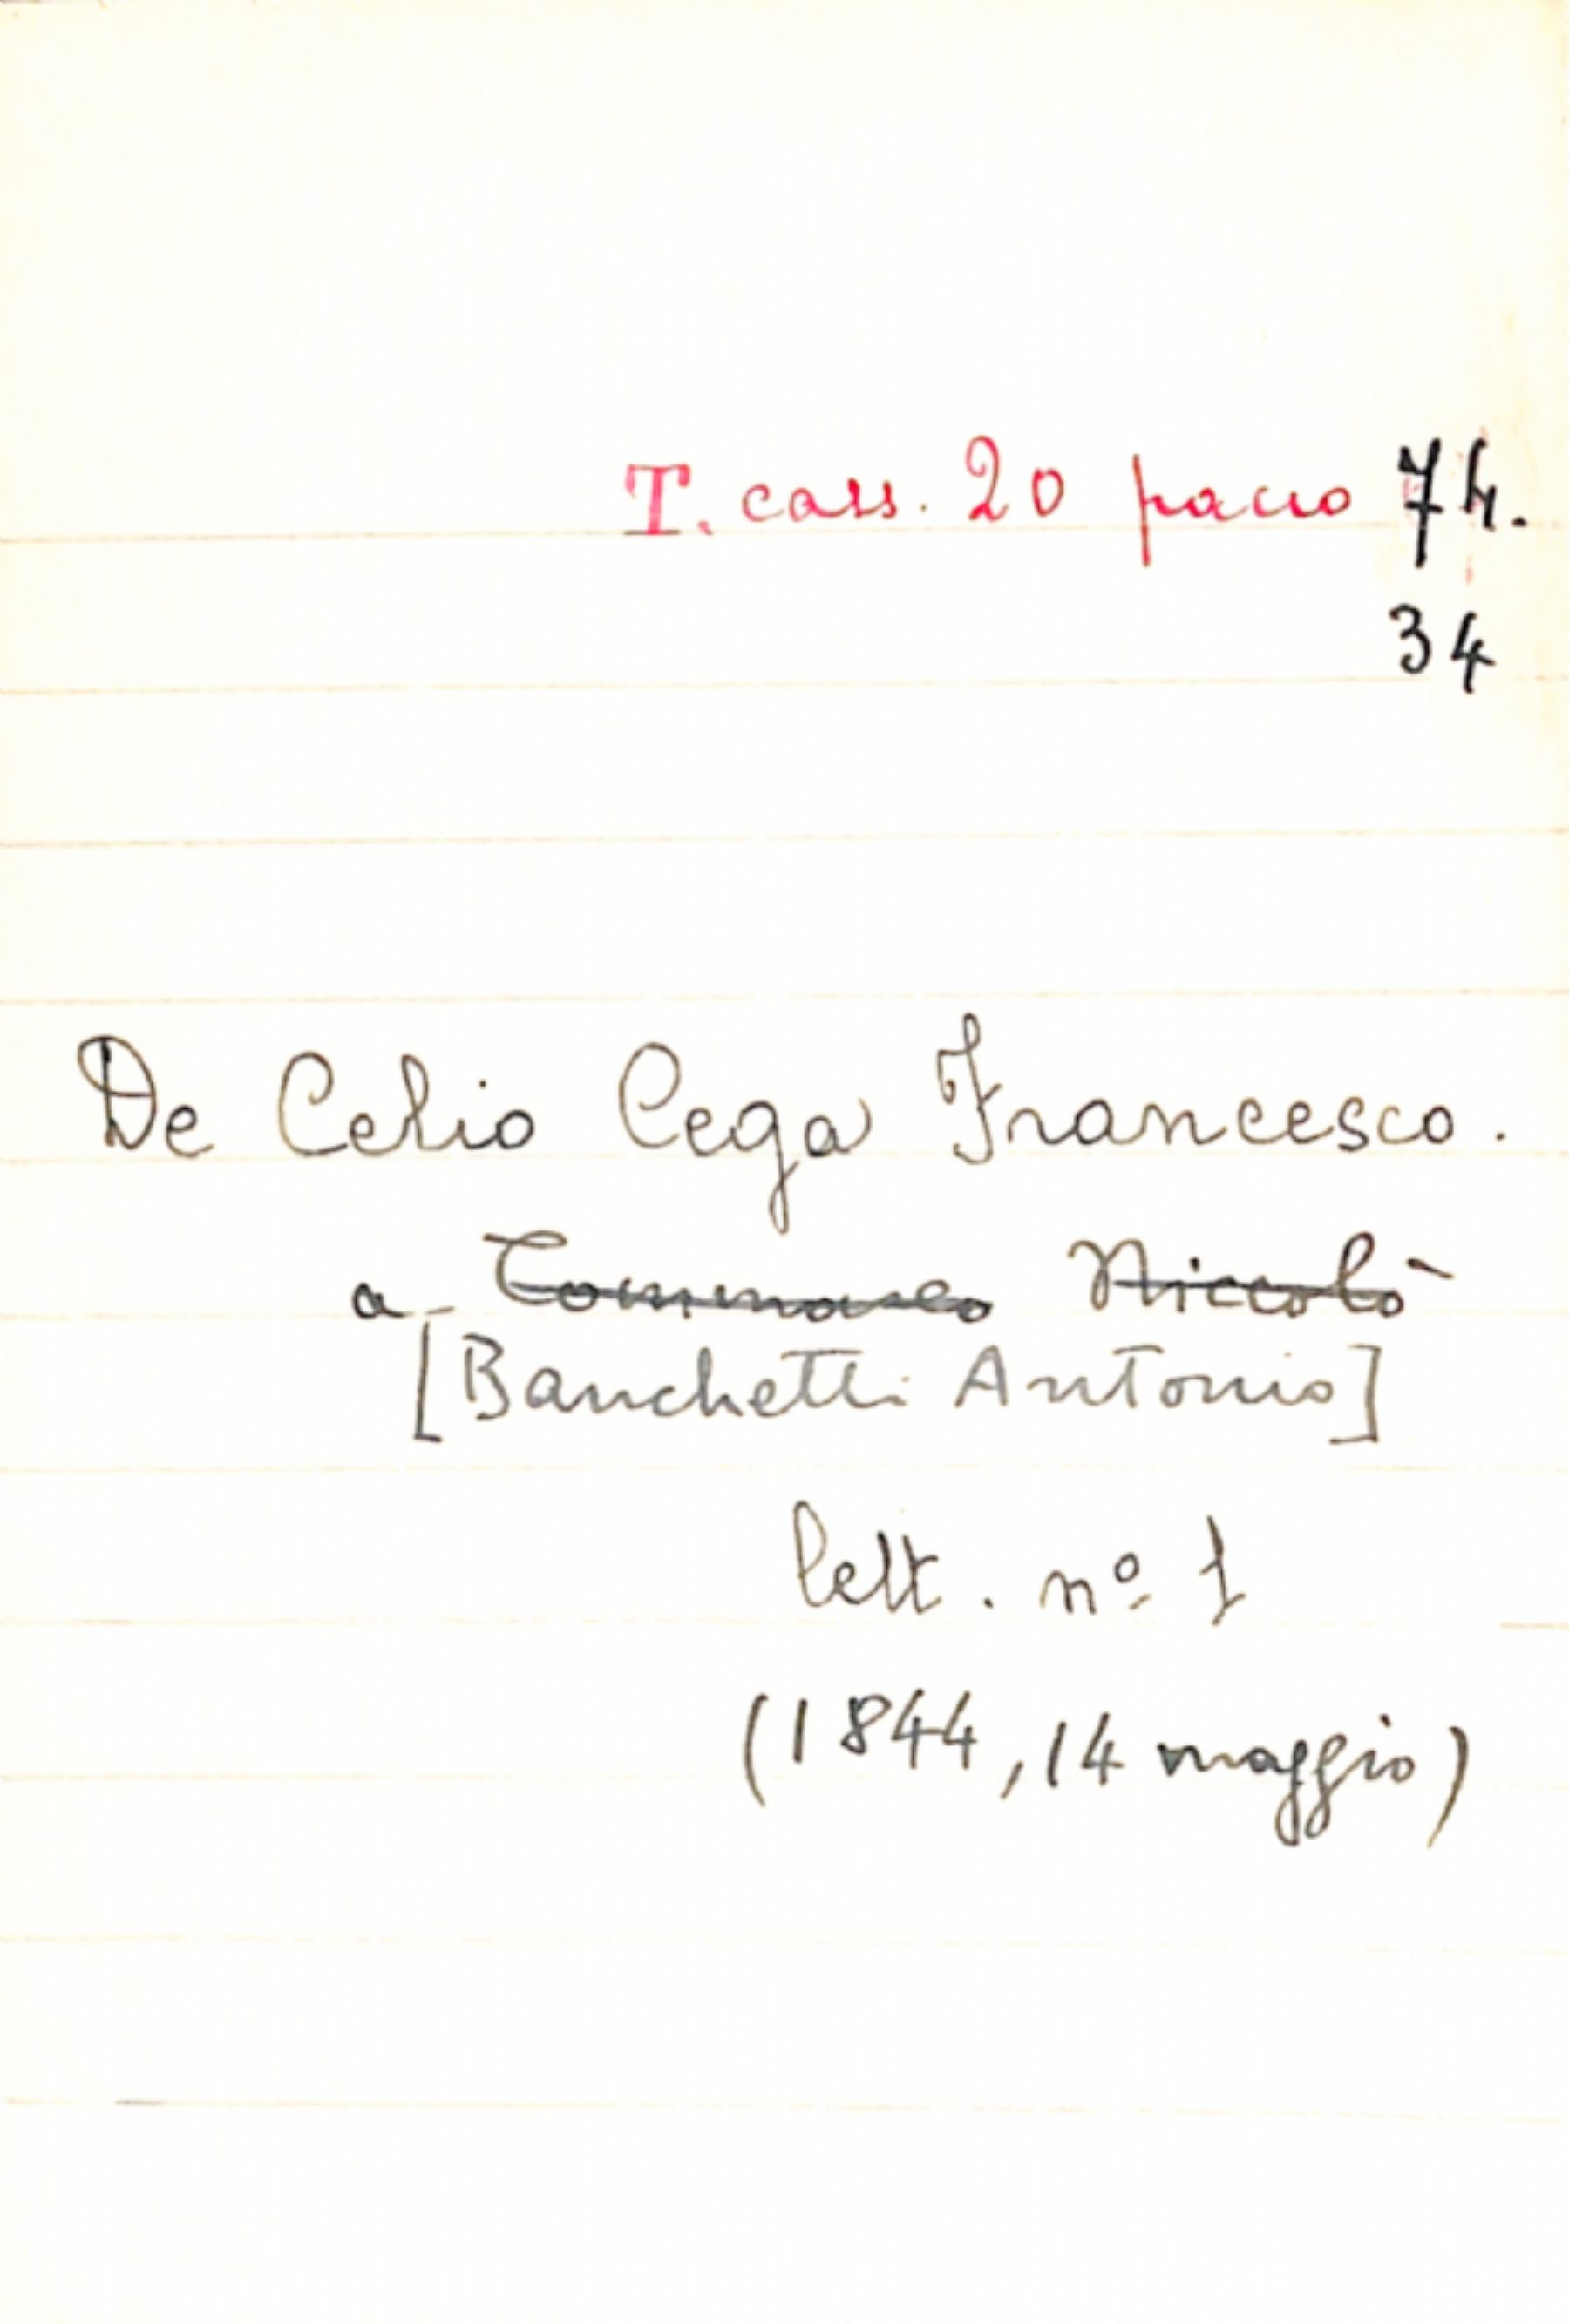 T. cass. 20 pacco 74.
34
De Celio Cega Francesco.
a Tommaseo Niccolò
[Banchetti Antonio]
lett. nº 1
(1844, 14 maggio)